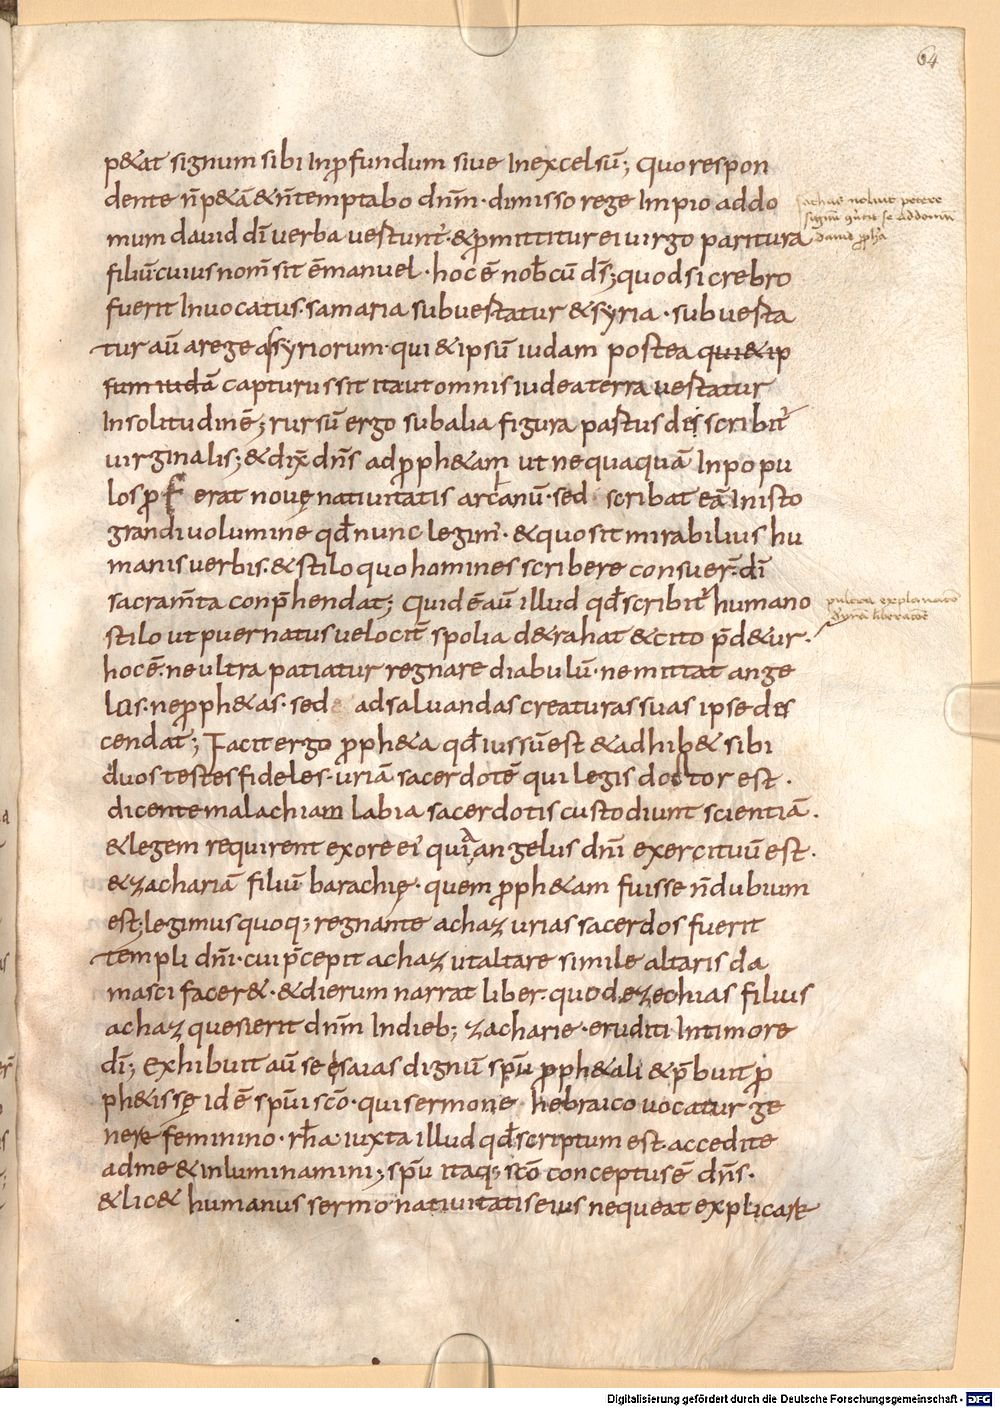 64
p&at signum sibi Inp̱fundum siue Inexcelsū; Quorespon
dente n̄p&ā &n̄temptabo dn̄m· dimisso rege Impio addo
mum dauid dī uerba uertunt̄· &p̱mittitur ei uirgo paritura
filiū cuius nom̄ sit ēmanuel· hoc ē nob̄cū d̄s; quodsi crebro
fuerit Inuocatus· samaria subuertatur & syria· subuerta
tur aū arege assyriorum· qui & ipsū iudam postea qui & ip
sum iudā capturus sit ita ut omnis iudea terra uertatur
Insolitudinē; rursū ergo sub alia figura partus describit̄
uirginalis; & dix̄ dn̄s ad p̱ph&am ut nequaquā Inpopu
los p̱ferat nouę natiuitatis arcanū· sed scribat eā Inisto
grandi uolumine qd̄ nunc legim̄· & quo sit mirabilius hu
manis uerbis· & stilo quo homines scribere consuer̄· dī
sacram̄ta conp̄hendat; Quid ē aū illud qd̄ scribit̄ humano
stilo ut puer natus uelocit̄ spolia d&rahat & cito p̄d&ur·
hoc ē· ne ultra patiatur regnare diabulū· ne mittat ange
los· ne p̱ph&as· sed ad saluandas creaturas suas ipse des
cendat; Facit ergo p̱ph&a qd̄ iussū est & adhib& sibi
duos testes fideles· uriā sacerdotē qui legis doctor est·
dicente malachiam labia sacerdotis custodiunt scientiā·
& legem requirent ex ore ei' quia angelus dn̄i exercituū est·
& zachariā filiū barachię· quem p̱ph&am fuisse n̄ dubium
est; legimus quoq; regnante achaz urias sacerdos fuerit
templi dn̄i· cui p̄cepit achaz ut altare simile altaris da
masci facer&· & dierum narrat liber· quod ezechias filius
achaz quesierit dn̄m Indieb; zacharie· eruditi Intimore
dī; Exhibuit aū se esaias dignū sp̄u p̱ph&ali & p̄buit p̱
ph&issę id ē sp̄ui sc̄o· qui sermone hebraico uocatur ge
nere feminino· rh̄a iuxta illud qd̄ scriptum est· accedite
ad me & inluminamini; sp̄u itaq; sc̄o conceptus ē dn̄s·
& lic& humanus sermo natiuitatis eius nequeat explicare
achaz noluit petere